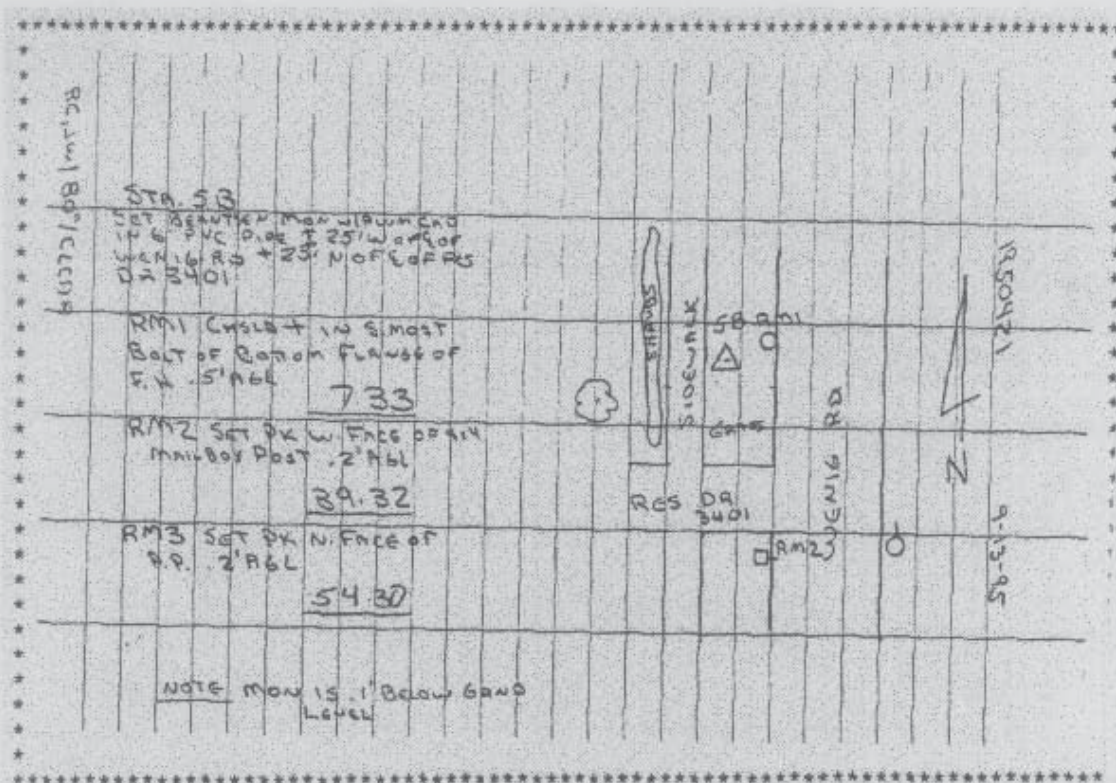 STA. 5B
SET MON W/ALUM CAP
IN 6" PVC PIPE ± 25' W OF ℄ OF
WENIG RD + 25' N OF ℄ OF RES
DR 3401
RM1 CHSLD + IN S. MOST
BOLT OF BOTTOM FLANGE OF
F.H. .5' AGL
7.33
RM2 SET PK W. FACE OF 4x4
MAILBOX POST .2' AGL
39.32
RM3 SET PK N. FACE OF
P.P. .2' AGL
54.30
NOTE MON IS .1' BELOW GRND
LEVEL
SHRUBS
SIDEWALK
5B RM1
GRASS
RES DR
3401
WENIG RD
RM2
N
950421
9-13-95